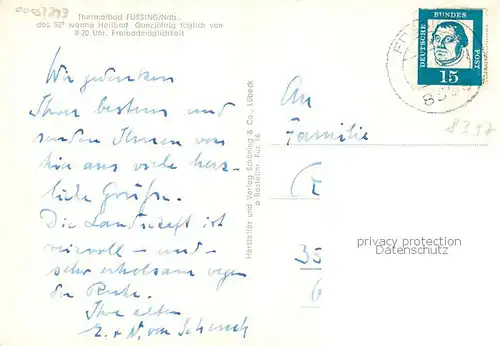 Thermalbad FÜSSING/Ndb.,
das 52° warme Heilbad. Ganzjährig täglich von
8-20 Uhr. Freibademöglichkeit
DEUTSCHE BUNDES POST
15
8397
Wir gedenken
Ihrer bestens und
senden Ihnen von
hier aus viele herz-
liche Grüße.
Die Landschaft ist
reizvoll - und -
sehr erholsam wegen
der Ruhe.
Ihre alten
E. + W. von
An
Familie
Hersteller und Verlag Schöning & Co., Lübeck
Bestellnr. Füs 16
privacy protection
Datenschutz